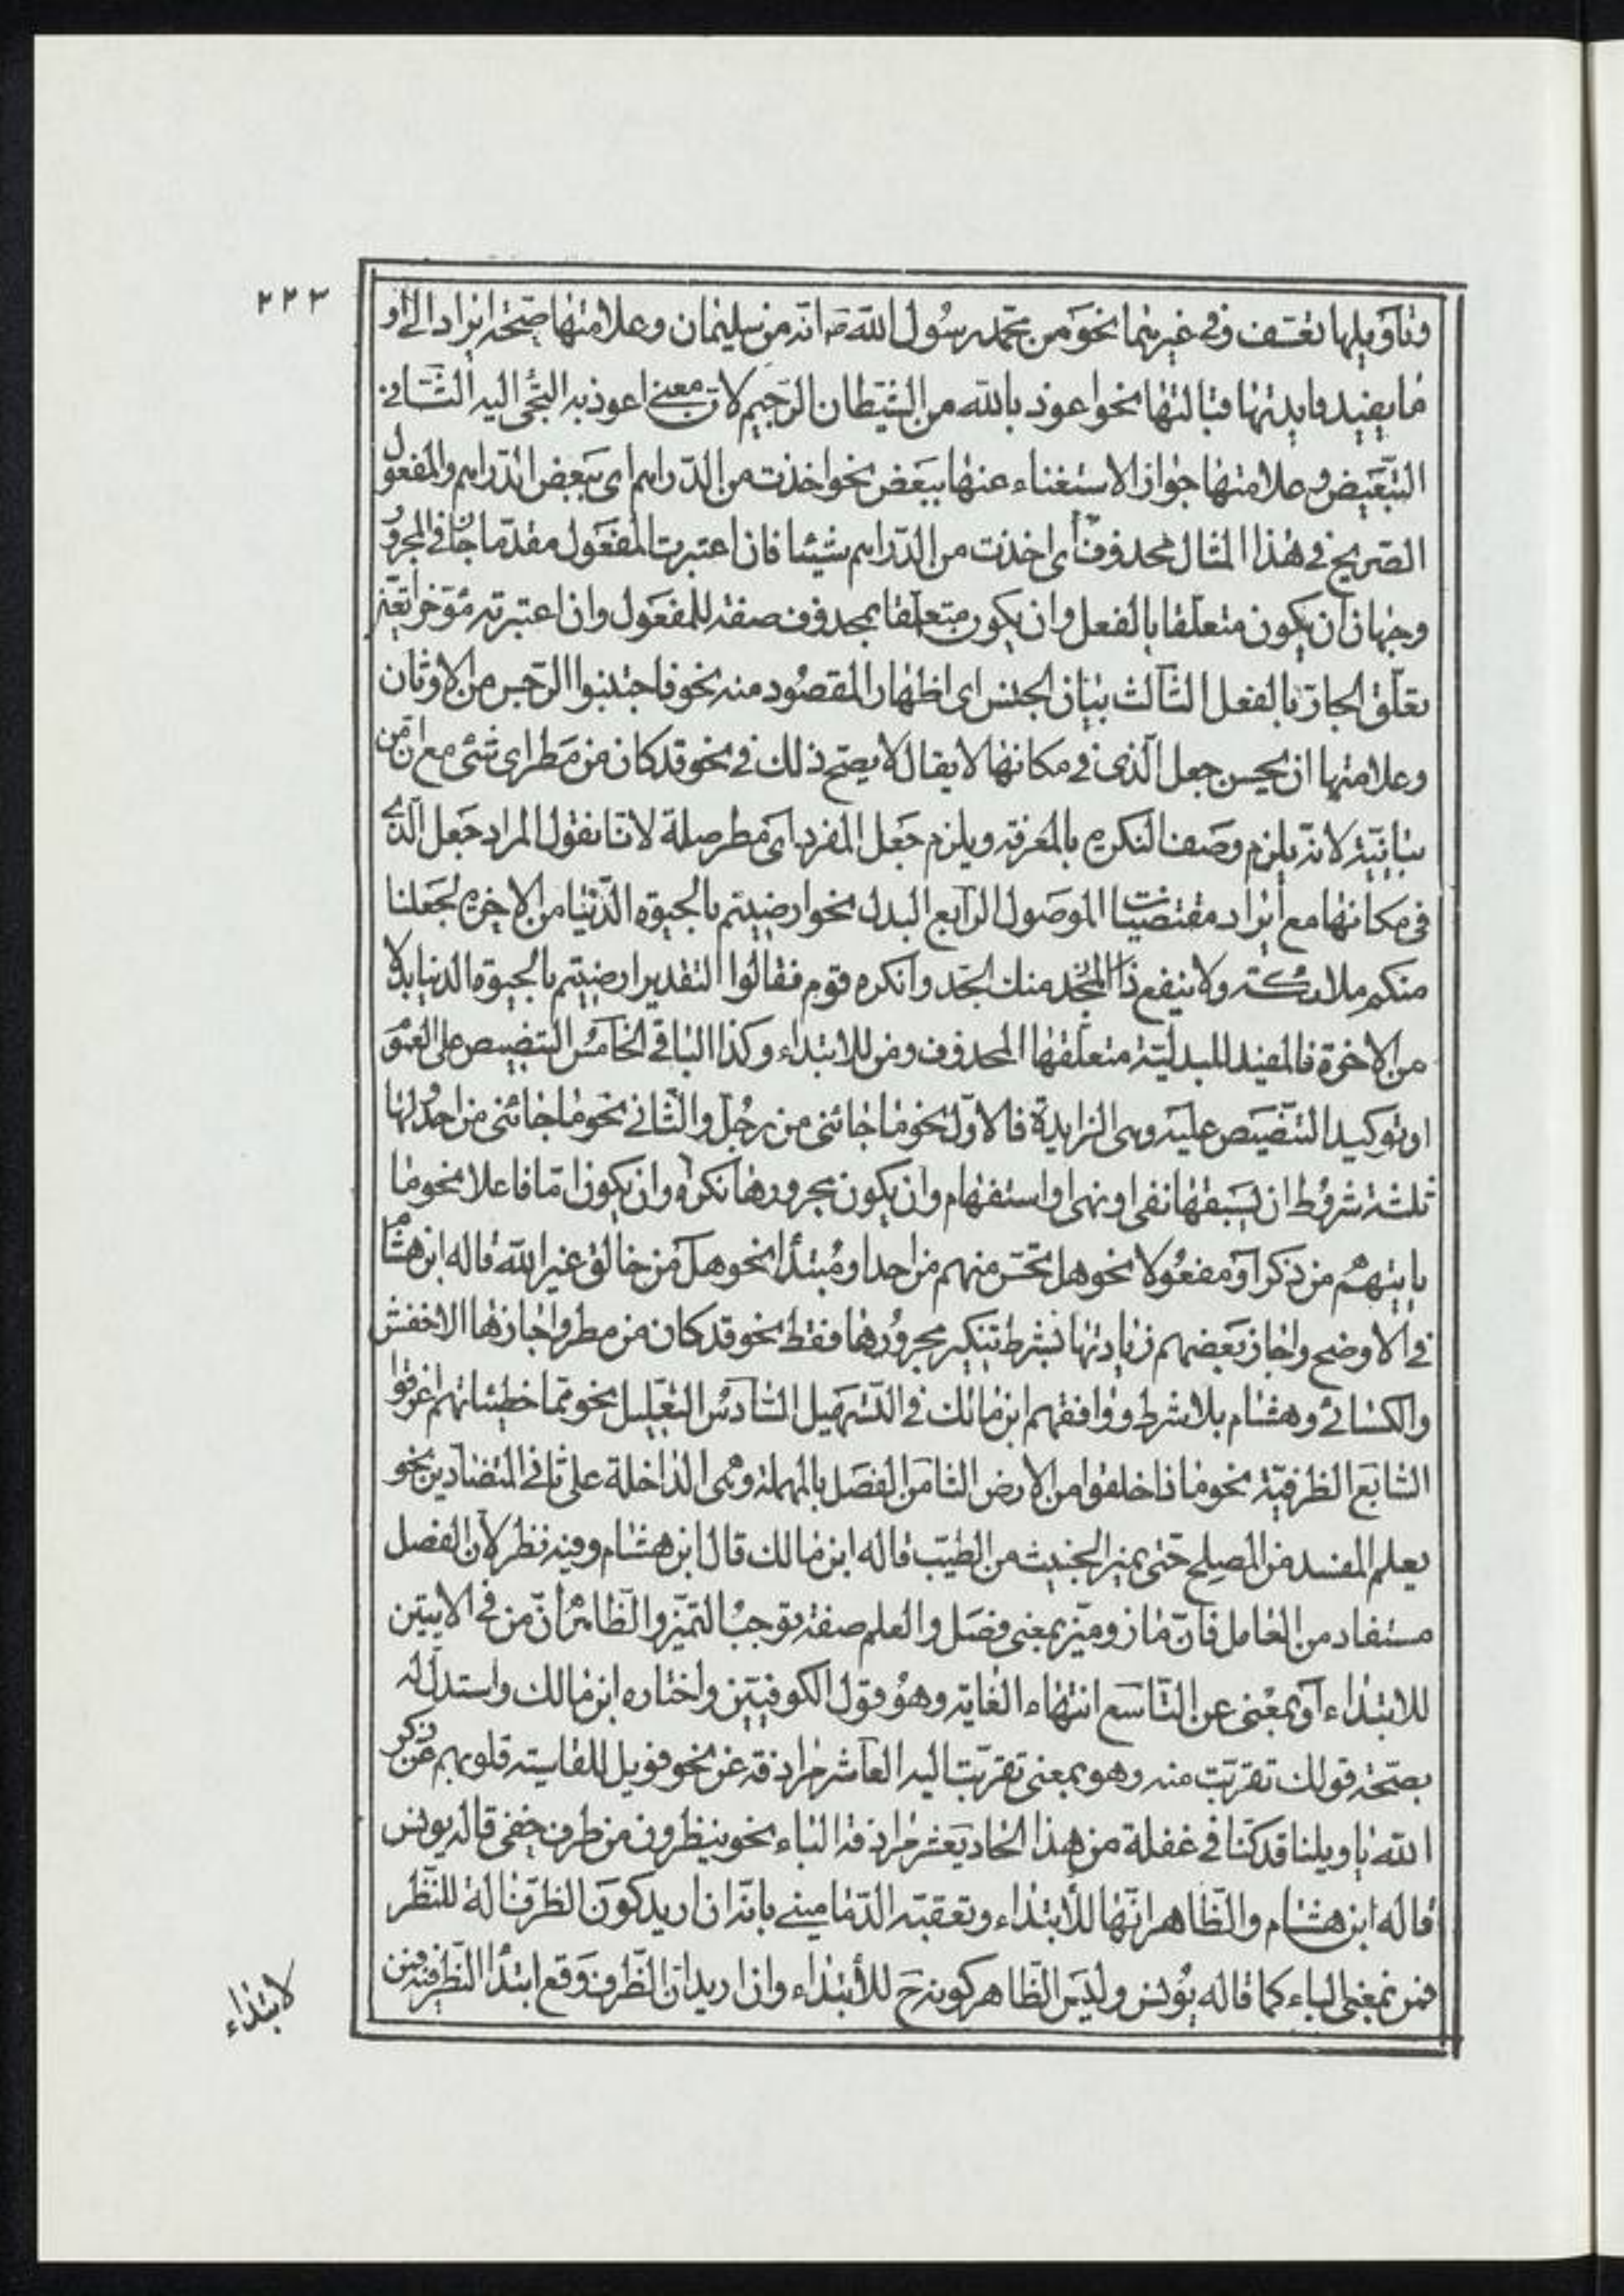 ٢٢٣
وتاويلها تعسف وفي غيرهما نحو من محمد رسول الله ص انه من سليمان وعلامتها صحة ايراد الى او
ما يفيد فايدتها قبالتها نحو اعوذ بالله من الشيطان الرجيم لان معنى اعوذ به التجئ اليه الثاني
التبعيض وعلامتها جواز الاستغناء عنها ببعض نحو اخذت من الدراهم اى بعض الدراهم والمفعول
الصريح في هذا المثال محذوف أى اخذت من الدراهم شيئا فان اعتبرت المفعول مقدما جاز في المجرور
وجهان ان يكون متعلقا بالفعل وان يكون متعلقا بمحذوف صفة للمفعول وان اعتبرته مؤخرا تعين
تعلق الجار بالفعل الثالث بيان الجنس اى اظهار المقصود منه نحو فاجتنبوا الرجس من الاوثان
وعلامتها ان يحسن جعل الذى في مكانها لا يقال لا يصح ذلك في نحو قد كان من مطر اى شئ مع ان من
بيانية لانه يلزم وصف النكره بالمعرفة ويلزم جعل المفرد اى مطر صلة لانا نقول المراد جعل الذى
في مكانها مع ايراد مقتضيات الموصول الرابع البدل نحو ارضيتم بالحيوة الدنيا من الاخرة لجعلنا
منكم ملائكة ولا ينفع ذا الجد منك الجد وانكره قوم فقالوا التقدير ارضيتم بالحيوة الدنيا بدلا
من الاخرة فالمفيد للبدلية متعلقها المحذوف ومن للابتداء وكذا الباقي الخامس التنصيص على العموم
او توكيد التنصيص عليه وهى الزايدة فالاول نحو ما جائنى من رجل والثاني نحو ما جائنى من احد ولها
ثلثة شروط ان يسبقها نفى او نهى او استفهام وان يكون مجرورها نكرة وان يكون اما فاعلا نحو ما
ياتيهم من ذكر او مفعولا نحو هل تحس منهم من احد او مبتدأ نحو هل من خالق غير الله قاله ابن هشام
في الاوضح واجاز بعضهم زيادتها بشرط تنكير مجرورها فقط نحو قد كان من مطر واجازها الاخفش
والكسائى وهشام بلا شرط ووافقهم ابن مالك في التسهيل السادس التعليل نحو مما خطيئاتهم اغرقوا
السابع الظرفية نحو ماذا خلقوا من الارض الثامن الفصل بالمهملة وهى الداخلة على ثانى المتضادين نحو
يعلم المفسد من المصلح حتى يميز الخبيث من الطيب قاله ابن مالك قال ابن هشام وفيه نظر لان الفصل
مستفاد من العامل فان ماز وميز بمعنى فصل والعلم صفة توجب التميز والظاهر ان من في الايتين
للابتداء او بمعنى عن التاسع انتهاء الغاية وهو قول الكوفيين واختاره ابن مالك واستدل له
بصحة قولك تقربت منه وهو بمعنى تقربت اليه العاشر مرادفة عن نحو فويل للقاسية قلوبهم عن ذكر
الله يا ويلنا قد كنا في غفلة من هذا الحاديعشر مرادفة الباء نحو ينظرون من طرف خفى قاله يونس
قاله ابن هشام والظاهر انها للأبتداء وتعقبه الدمامينى بانه ان اريد كون الطرف الة للنظر
فمن بمعنى الباء كما قاله يونس وليس الظاهر كونه ح للأبتداء وان اريد ان الطرف وقع ابتدأ النظر فيه فمن
لابتداء